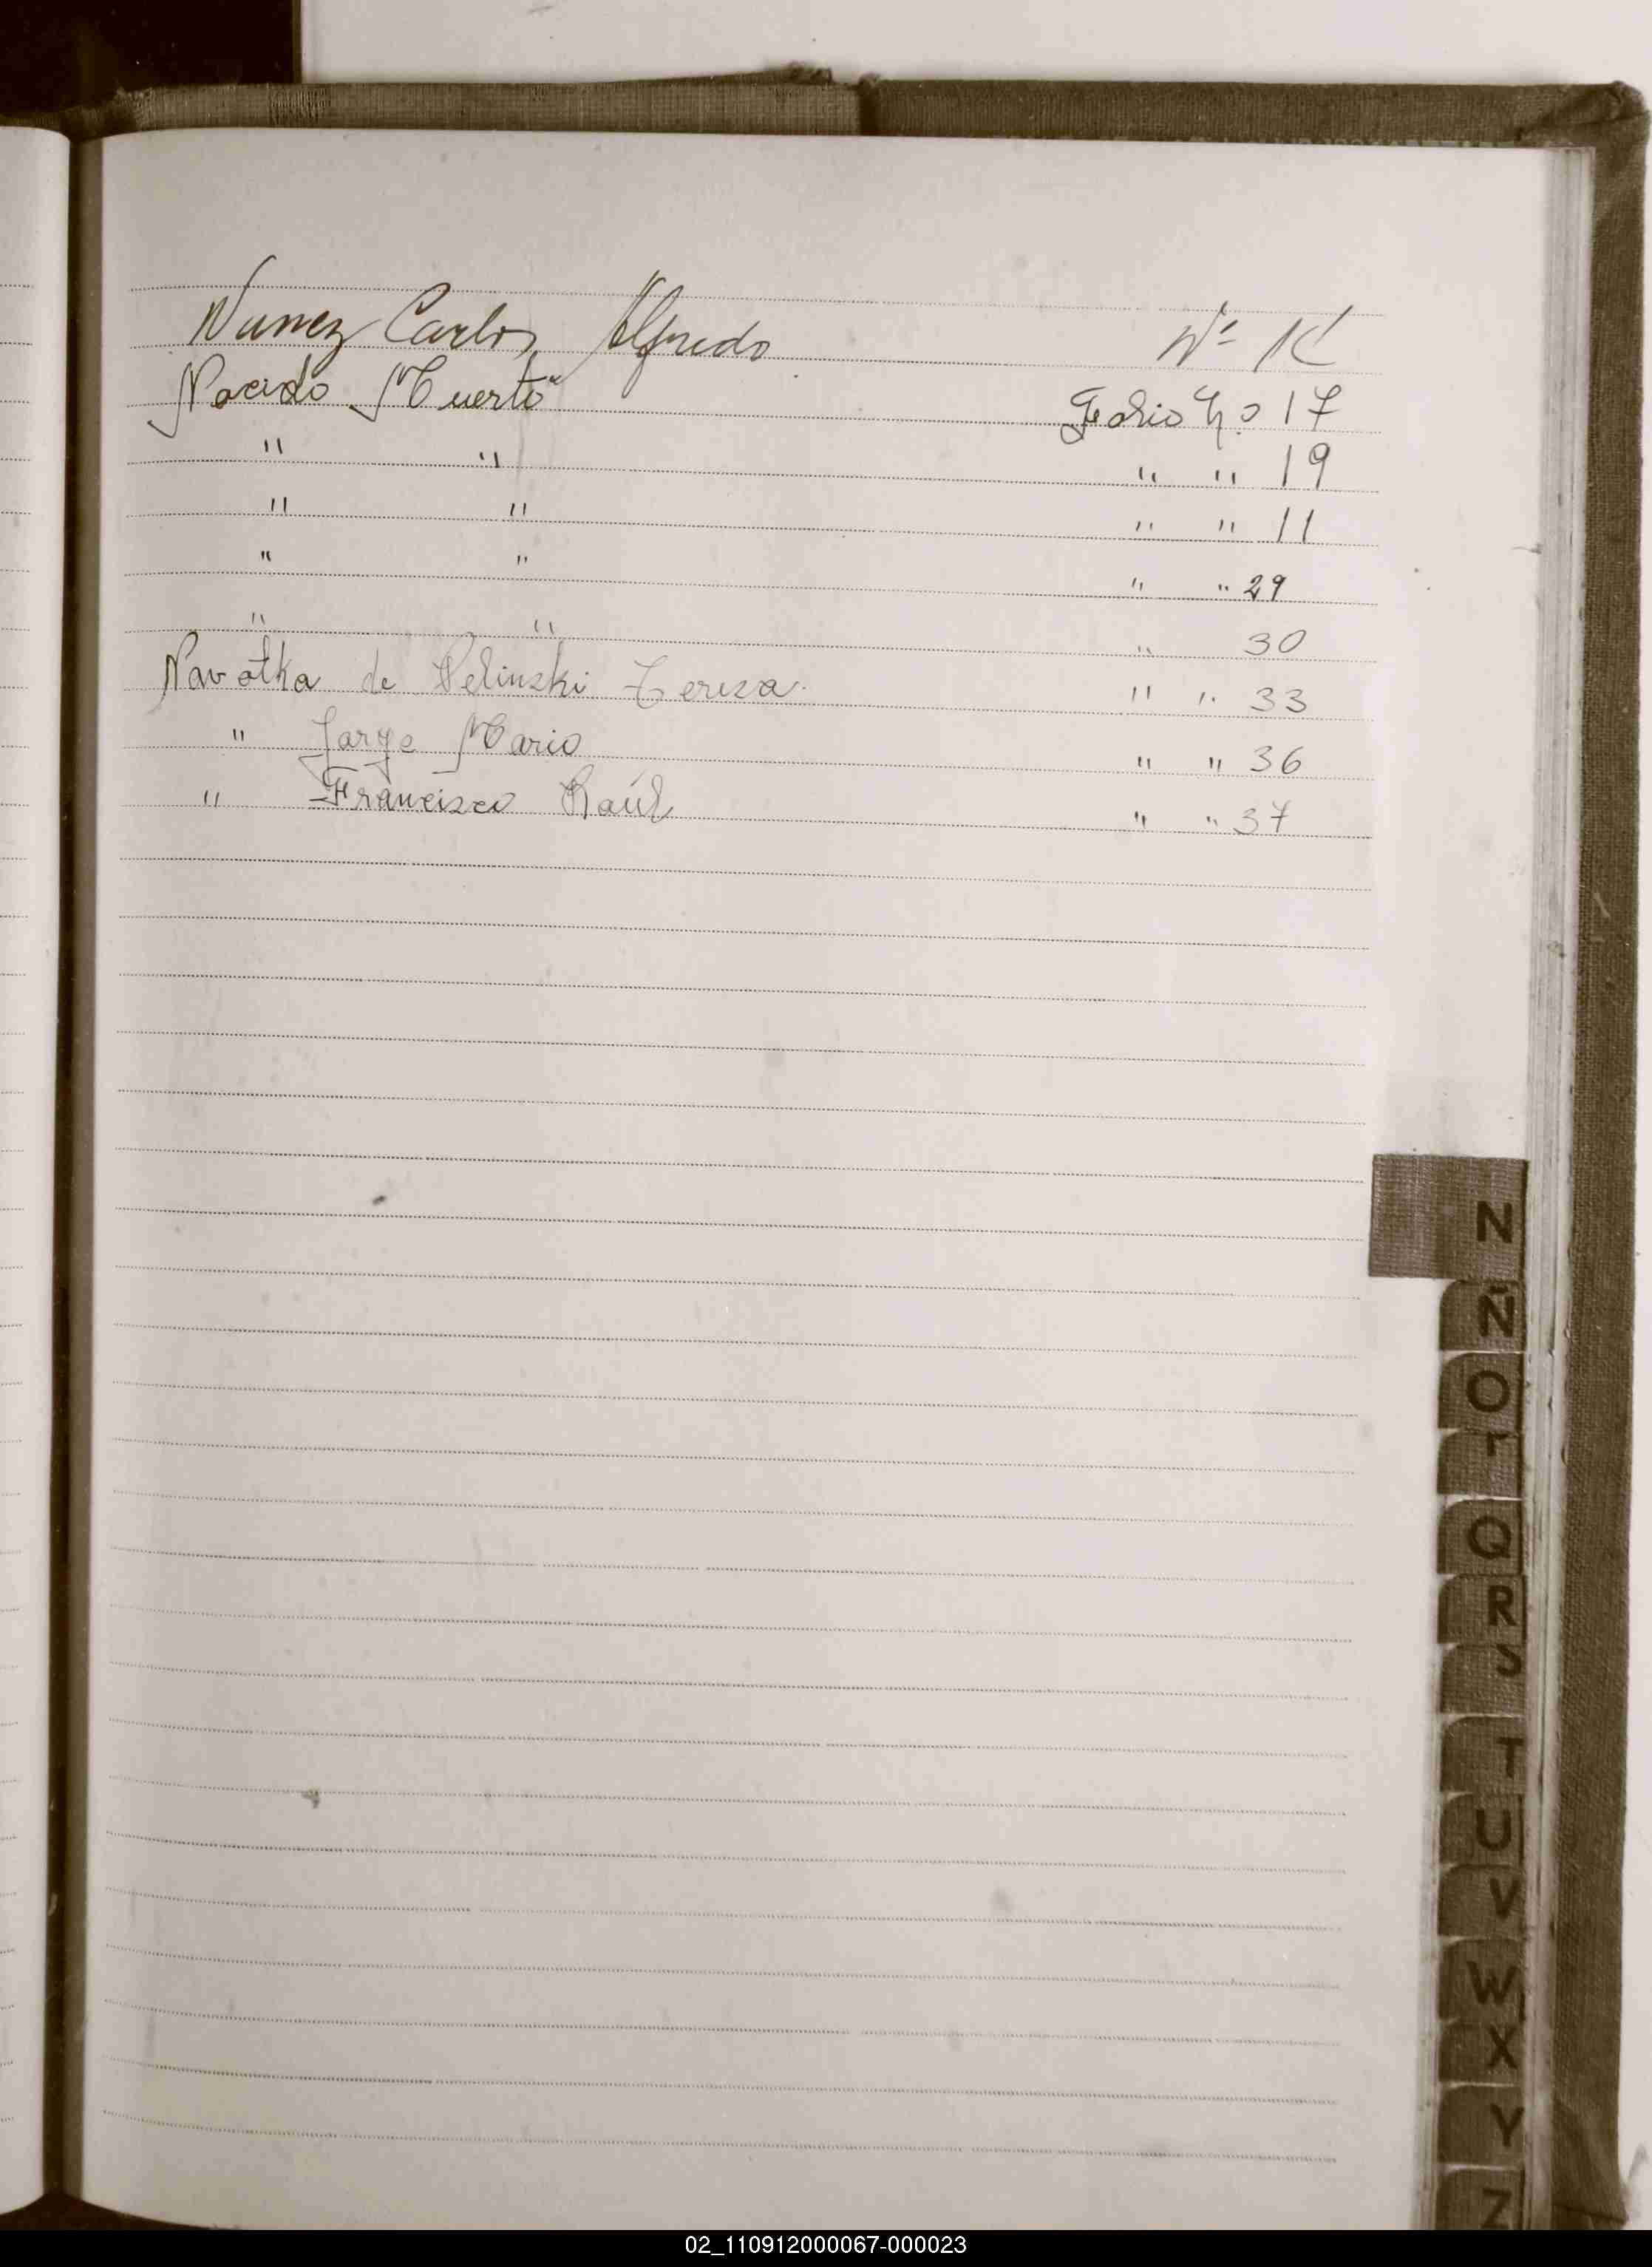 Nunez Carlos Alfredo Nº
Nacido Muerto Folio n.o 17
" " " " 19
" " " " 11
" " " " 29
" " " 30
Navotka de Pelinski Tereza " " 33
" Jorge Mario " " 36
" Francisco Raúl " " 37
N
Ñ
O
P
Q
R
S
T
U
V
W
X
Y
Z
02_110912000067-000023